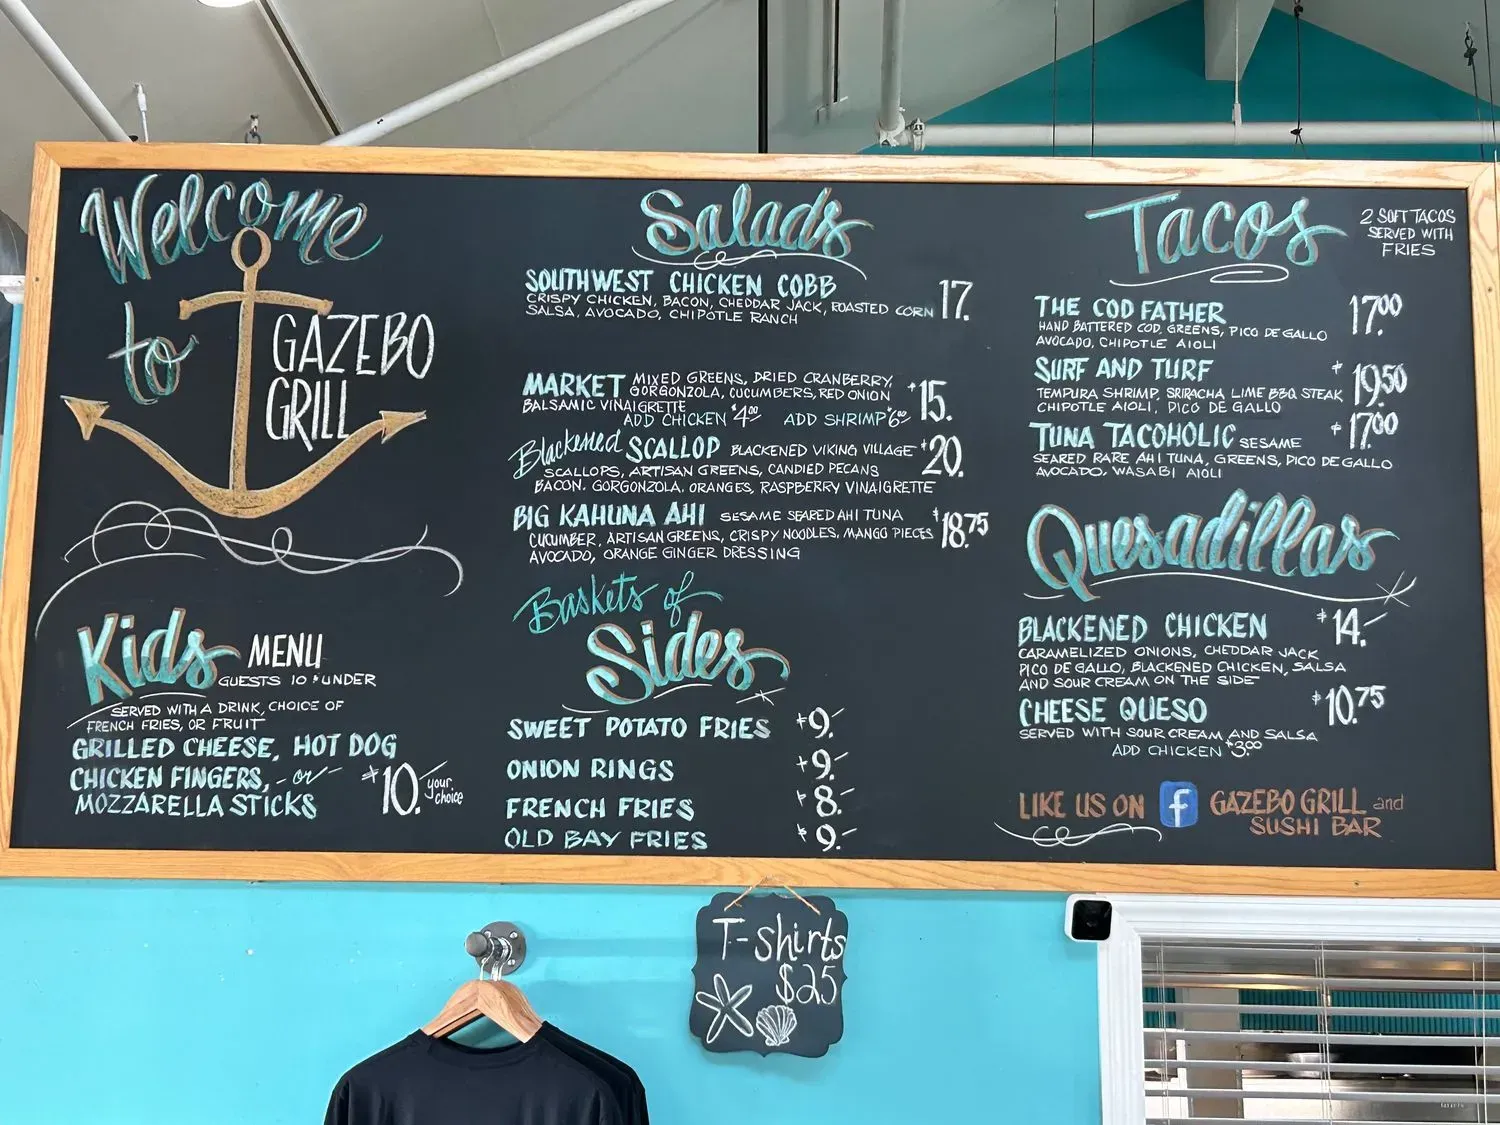 Welcome
to
GAZEBO
GRILL
Kids MENU
GUESTS 10 & UNDER
SERVED WITH A DRINK, CHOICE OF
FRENCH FRIES, OR FRUIT
GRILLED CHEESE, HOT DOG
CHICKEN FINGERS, -or-
MOZZARELLA STICKS
$10.- your choice
Salads
SOUTHWEST CHICKEN COBB 17.
CRISPY CHICKEN, BACON, CHEDDAR JACK, ROASTED CORN
SALSA, AVOCADO, CHIPOTLE RANCH
MARKET MIXED GREENS, DRIED CRANBERRY, $15.
GORGONZOLA, CUCUMBERS, RED ONION
BALSAMIC VINAIGRETTE
ADD CHICKEN $4.00 ADD SHRIMP $6.00
Blackened SCALLOP BLACKENED VIKING VILLAGE $20.
SCALLOPS, ARTISAN GREENS, CANDIED PECANS
BACON. GORGONZOLA. ORANGES, RASPBERRY VINAIGRETTE
BIG KAHUNA AHI SESAME SEARED AHI TUNA $18.75
CUCUMBER, ARTISAN GREENS, CRISPY NOODLES, MANGO PIECES
AVOCADO, ORANGE GINGER DRESSING
Baskets of
Sides
SWEET POTATO FRIES $9.-
ONION RINGS $9.-
FRENCH FRIES $8.-
OLD BAY FRIES $9.-
Tacos
2 SOFT TACOS
SERVED WITH
FRIES
THE COD FATHER 17.00
HAND BATTERED COD, GREENS, PICO DE GALLO
AVOCADO, CHIPOTLE AIOLI
SURF AND TURF $19.50
TEMPURA SHRIMP, SRIRACHA LIME BBQ STEAK
CHIPOTLE AIOLI, PICO DE GALLO
TUNA TACOHOLIC SESAME $17.00
SEARED RARE AHI TUNA, GREENS, PICO DE GALLO
AVOCADO, WASABI AIOLI
Quesadillas
BLACKENED CHICKEN $14.-
CARAMELIZED ONIONS, CHEDDAR JACK
PICO DE GALLO, BLACKENED CHICKEN, SALSA
AND SOUR CREAM ON THE SIDE
CHEESE QUESO $10.75
SERVED WITH SOUR CREAM AND SALSA
ADD CHICKEN $3.00
LIKE US ON f GAZEBO GRILL and
SUSHI BAR
T-shirts
$25